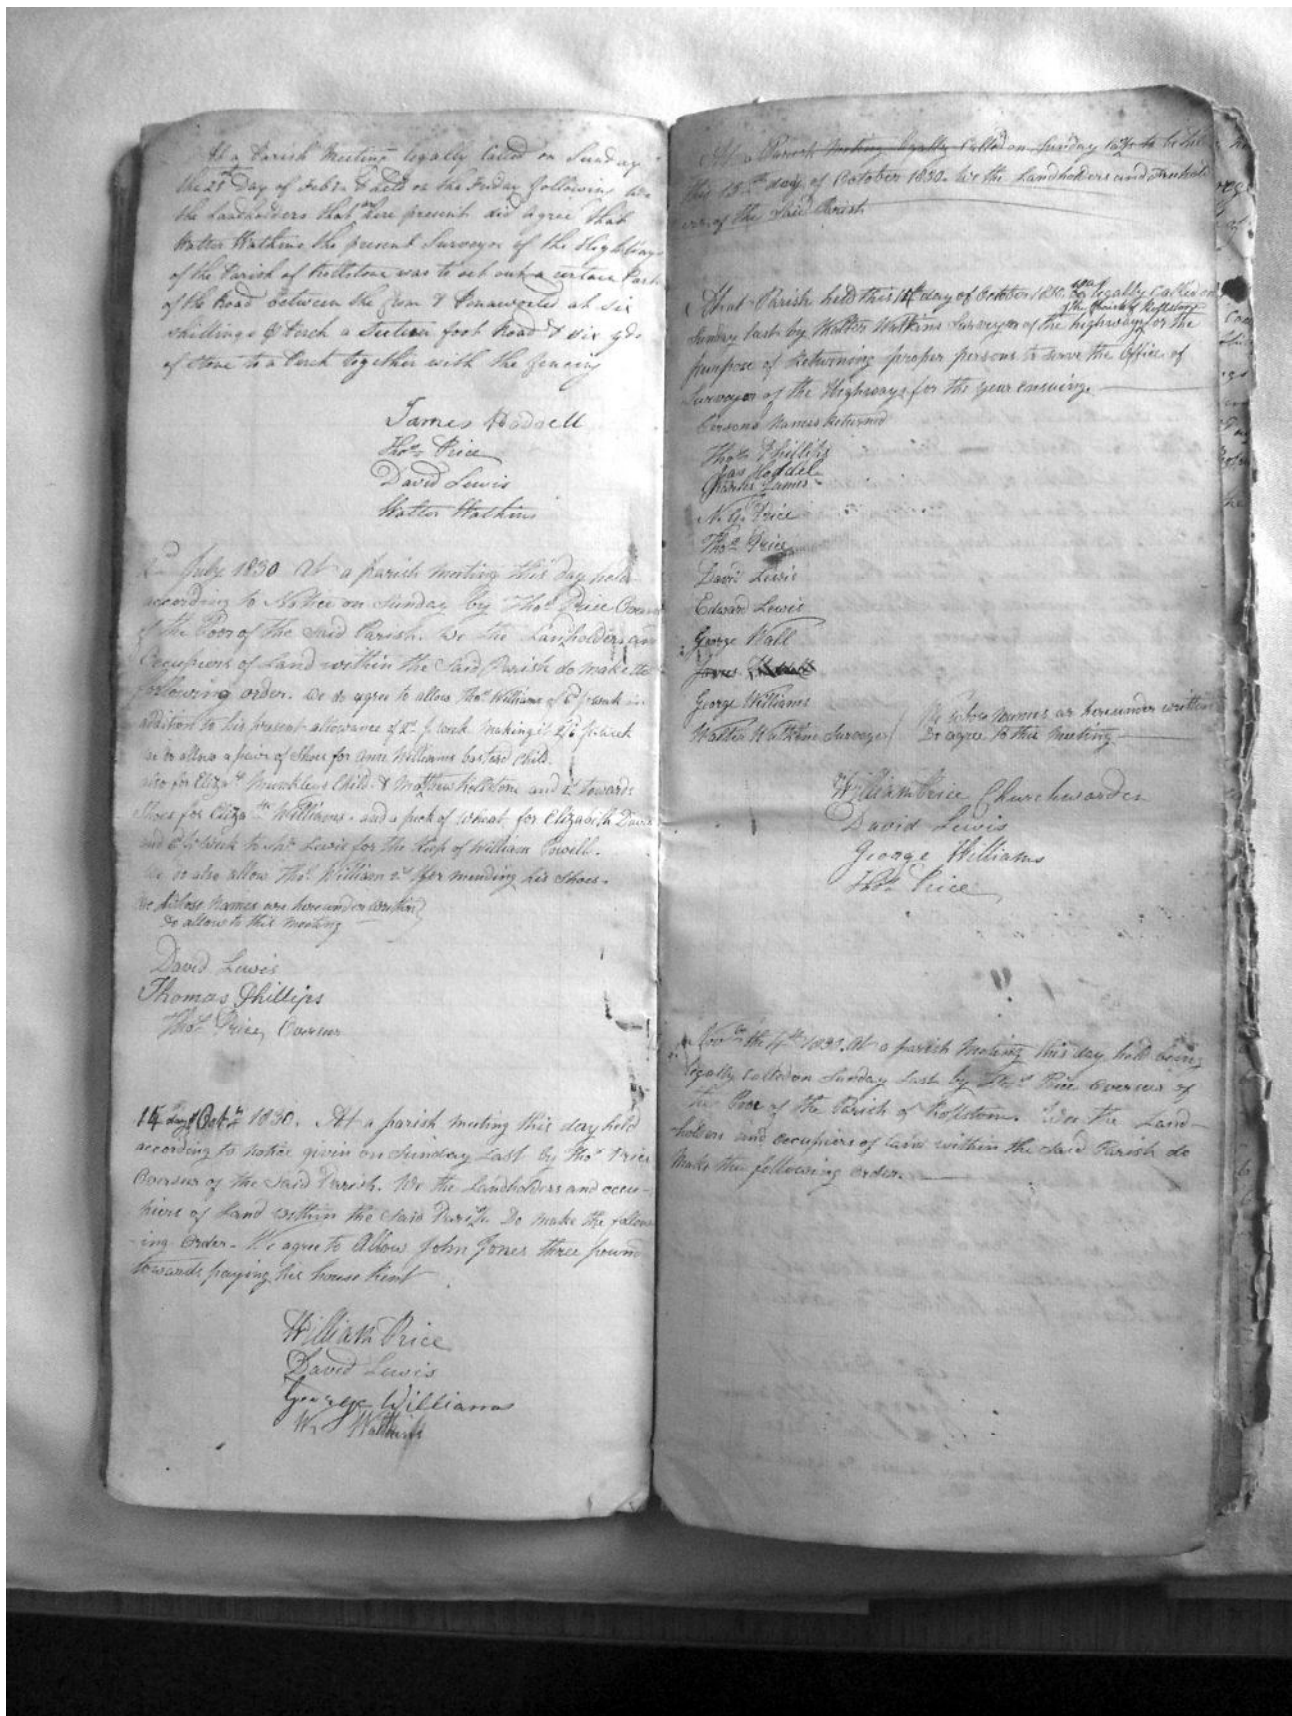 At a Parish Meeting legally Called on Sunday
the 21st Day of Feby & held on the Friday following We
the Landholders that are here present did agree that
Walter Watkins the present Surveyor of the Highways
of the Parish of was to let out a certain Part
of the Road between the & at six
shillings Perch a Sixteen foot Road & six yds
of stone to a Perch together with the fencing
James Hoddell
Thos Price
David Lewis
Walter Watkins
2nd July 1830 At a parish meeting this day held
according to Notice on Sunday by Thos Price Overseer
of the Poor of the Said Parish. We the Landholders and
Occupiers of Land within the Said Parish do make the
following order. We do agree to allow Thos Williams 6d pr week in
addition to his present allowance of 2s pr week making it 2/6 pr week
we do allow a pair of Shoes for Ann Williams bastard Child.
also for Elizath Child & Matthew and 1s towards
Shoes for Elizath Williams. and a peck of Wheat for Elizabeth Davis
and pr Week to Mr Lewis for the Keep of William Powell.
We do also allow Thos William for mending his Shoes.
We whose Names are hereunder written
do allow to this meeting
David Lewis
Thomas Phillips
Thos Price, Overseer
14 day of Octr 1830. At a parish meeting this day held
according to notice given on Sunday Last by Thos Price
Overseer of the Said Parish. We the Landholders and occu-
piers of Land within the Said Parish Do make the follow
-ing Order. We agree to Allow John Jones three pound
towards paying his house Rent
William Price
David Lewis
George Williams
Wr Watkins
At a Parish Meeting legally Called on Sunday last to be held
this 15th day of October 1830. We the Landholders and
of the Said Parish
At a Parish held this 15th day of October 1830. was legally Called on
Sunday last by Walter Watkins Surveyor of the highways of the Parish of for the
purpose of Returning proper persons to serve the Office of
Surveyor of the Highways for the year ensuing.
Persons Names Returned
Thos Phillips
Jas Hoddel
Charles James
N. G. Price
Thos Price
David Lewis
Edward Lewis
George Wall
James
George Williams
Walter Watkins Surveyor
We whose Names as hereunder written
Do agree to this Meeting
William Price Churchwarden
David Lewis
George Williams
Thos Price
Novbr the 4th 1830. At a parish Meeting this day held being
legally Called on Sunday Last by Thos Price Overseer of
the Poor of the Parish of Wee the Land-
holders and occupiers of land within the said Parish do
Make the following order.